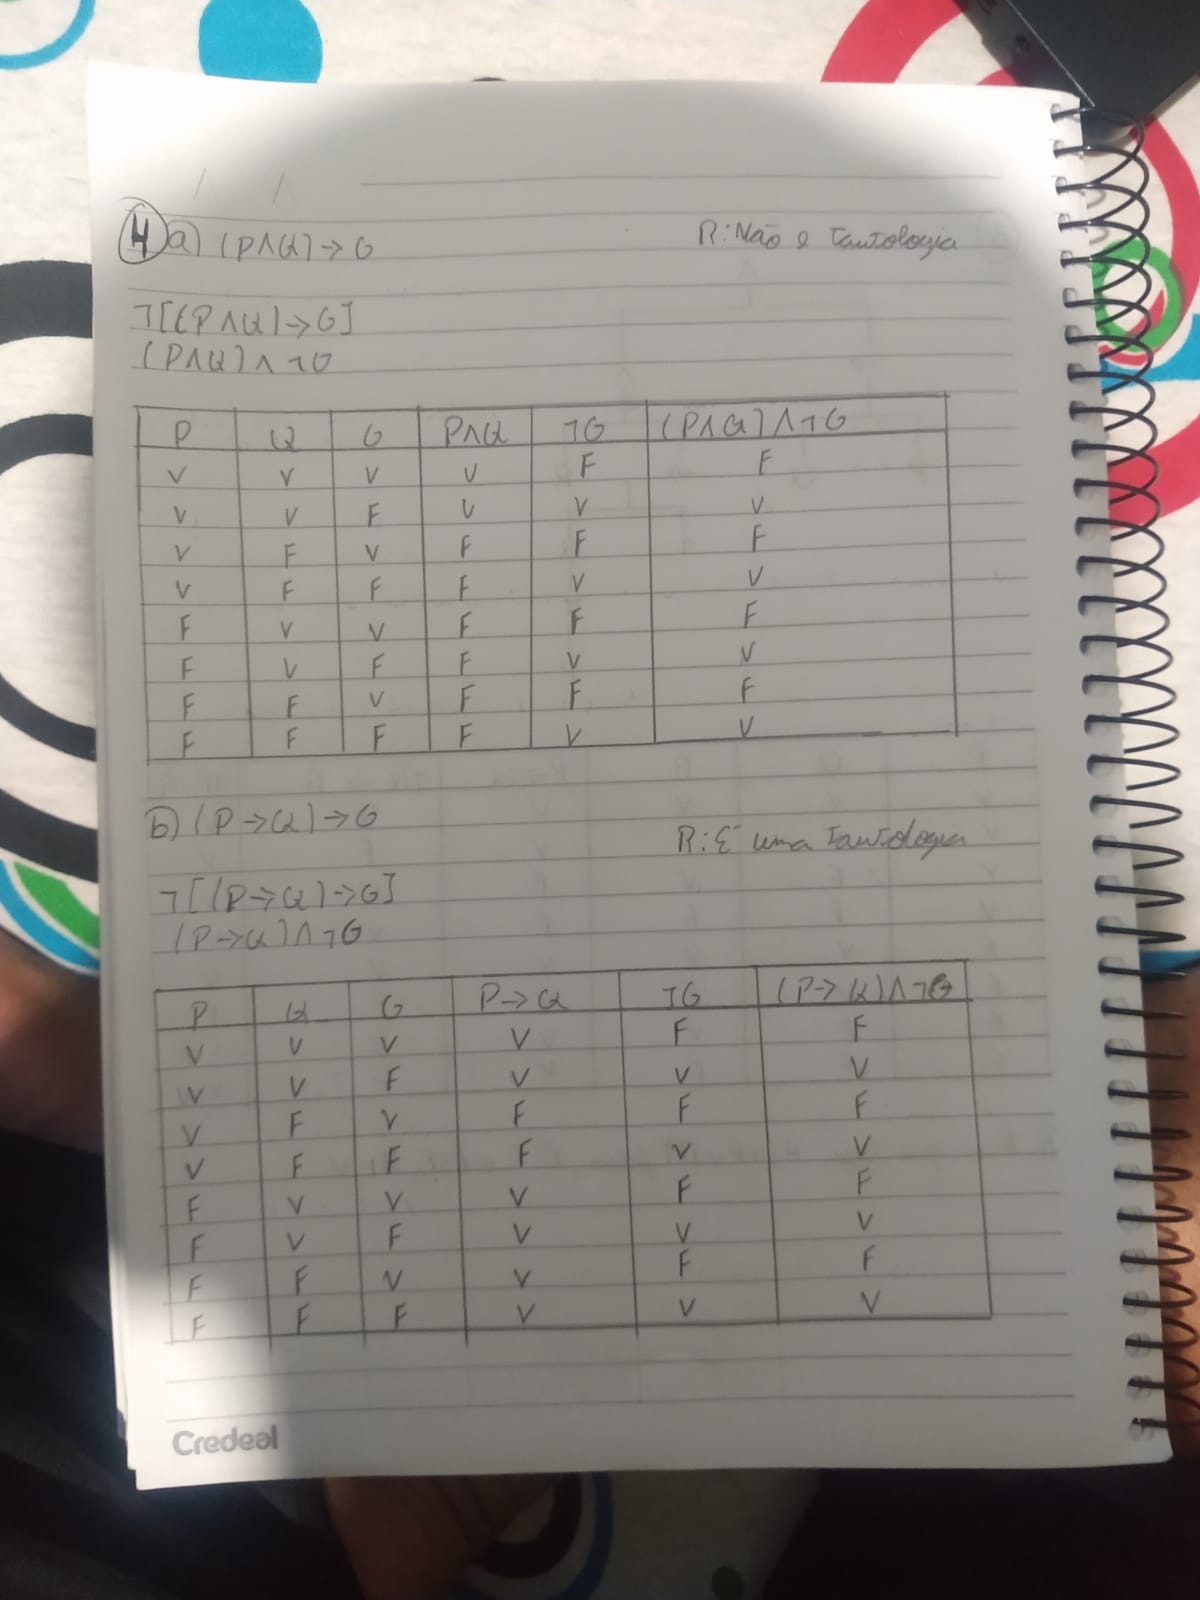 4 a) (P∧Q)→G R: Não e tautologia
¬[(P∧Q)→G]
(P∧Q)∧¬G
P Q G P∧Q ¬G (P∧Q)∧¬G
V V V V F F
V V F V V V
V F V F F F
V F F F V V
F V V F F F
F V F F V V
F F V F F F
F F F F V V
b) (P→Q)→G R: É uma tautologia
¬[(P→Q)→G]
(P→Q)∧¬G
P Q G P→Q ¬G (P→Q)∧¬G
V V V V F F
V V F V V V
V F V F F F
V F F F V V
F V V V F F
F V F V V V
F F V V F F
F F F V V V
Credeal